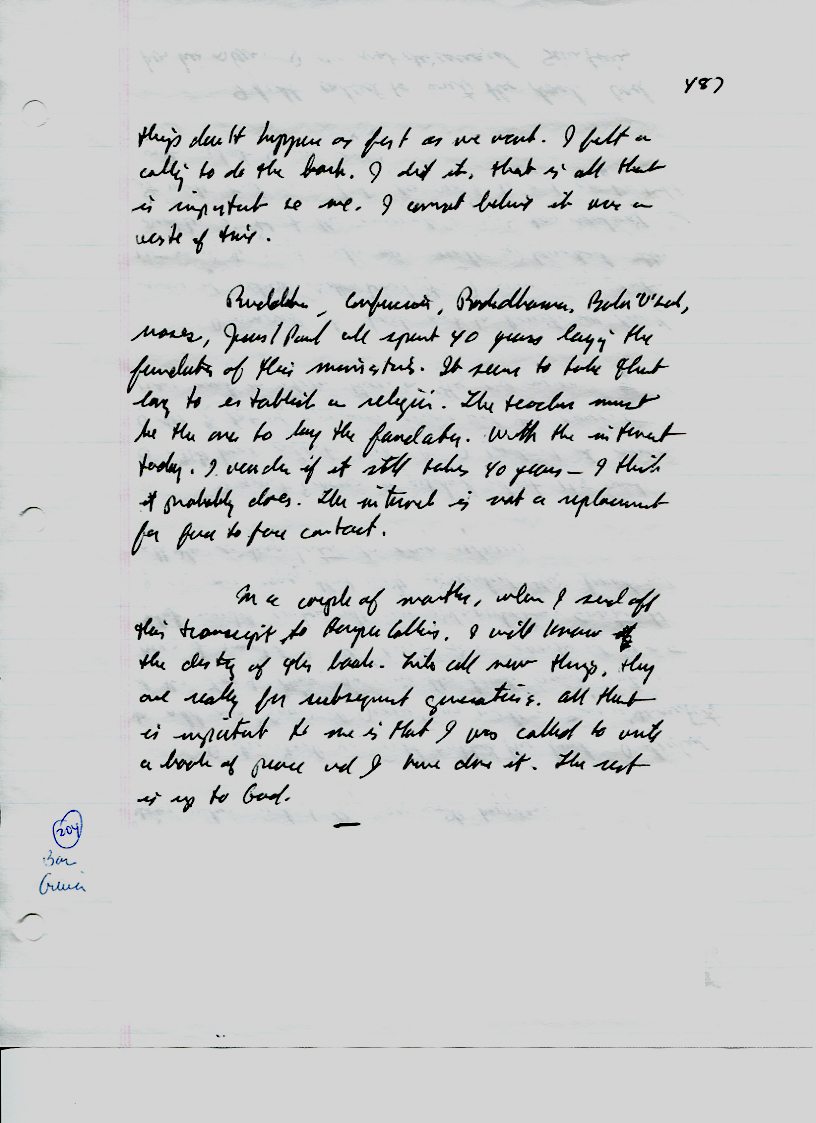 487
things don't happen as fast as we want. I felt a
calling to do the book. I did it, that is all that
is important to me. I cannot believe it was a
waste of time.
Buddha, Confucius, Bodhidharma, Baha'u'llah,
Moses, Jesus/Paul all spent 40 years laying the
foundation of their ministries. It seems to take that
long to establish a religion. The teacher must
be the one to lay the foundation. With the internet
today, I wonder if it still takes 40 years – I think
it probably does. The internet is not a replacement
for face to face contact.
In a couple of months, when I send off
this transcript to I will know
the destiny of this book. Like all new things, they
are really for subsequent generations. All that
is important to me is that I was called to write
a book of peace and I have done it. The rest
is up to God.
204